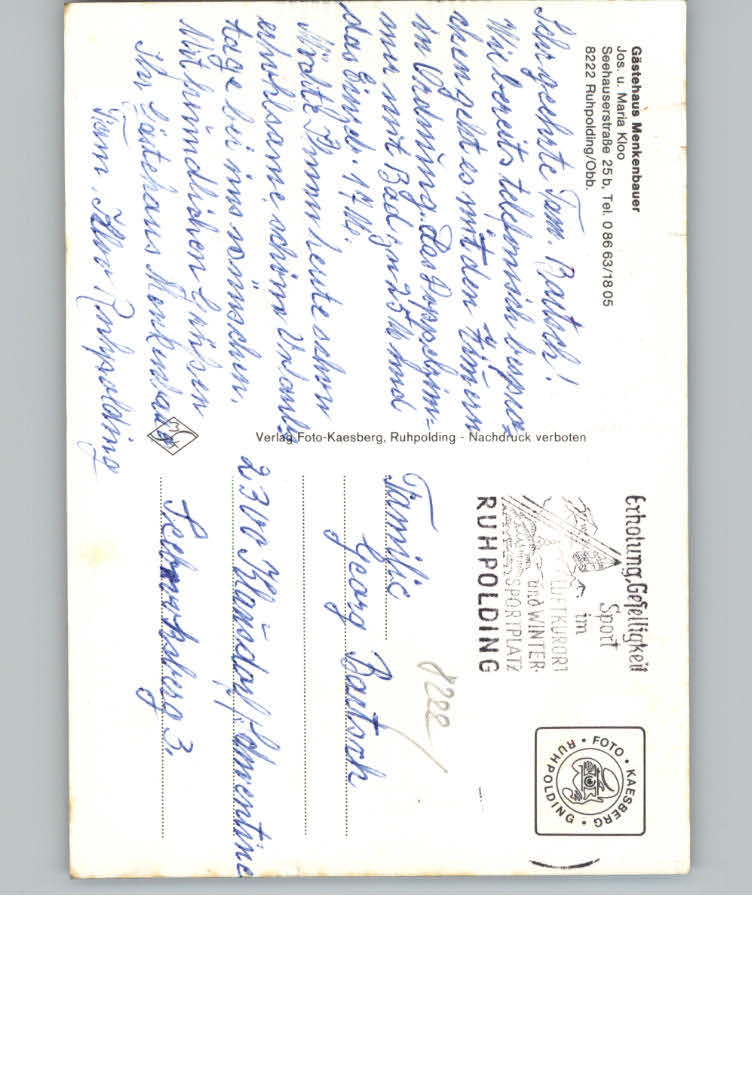 Gästehaus Menkenbauer
Jos. u. Maria Kloo
Seehauserstraße 25 b, Tel. 0 86 63/18 05
8222 Ruhpolding/Obb.
Sehr geehrte Fam. Bartsch!
Wie bereits telefonisch bespro-
chen geht es mit den Zimmern
in Ordnung. Das Doppelzim-
mer mit Bad zu 25 M und
das Einzel. 17 M.
Möchte Ihnen heute schon
erholsame, schöne Urlaubs
tage bei uns wünschen.
Mit freundlichen Grüßen
Ihr Gästehaus Menkenbauer
Fam. Kloo Ruhpolding
Verlag Foto-Kaesberg, Ruhpolding - Nachdruck verboten
Erholung, Geselligkeit
Sport
im
LUFTKURORT
und WINTER-
SPORTPLATZ
RUHPOLDING
FOTO · KAESBERG · RUHPOLDING ·
8222
Familie
Georg Bartsch
2300 Klausdorf/Schwentine
3.